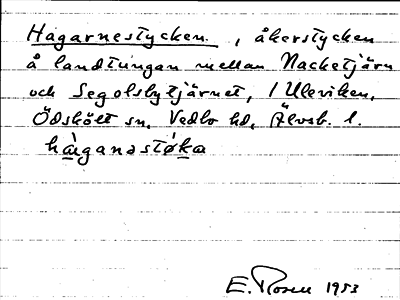 Hagarnestycken, åkerstycken
å landtungan mellan Nacketjärn
och Segolsbytjärnet, / Uleviken,
Ödskölt sn, Vedbo hd, Älvsb. l.
E. Rosen 1953